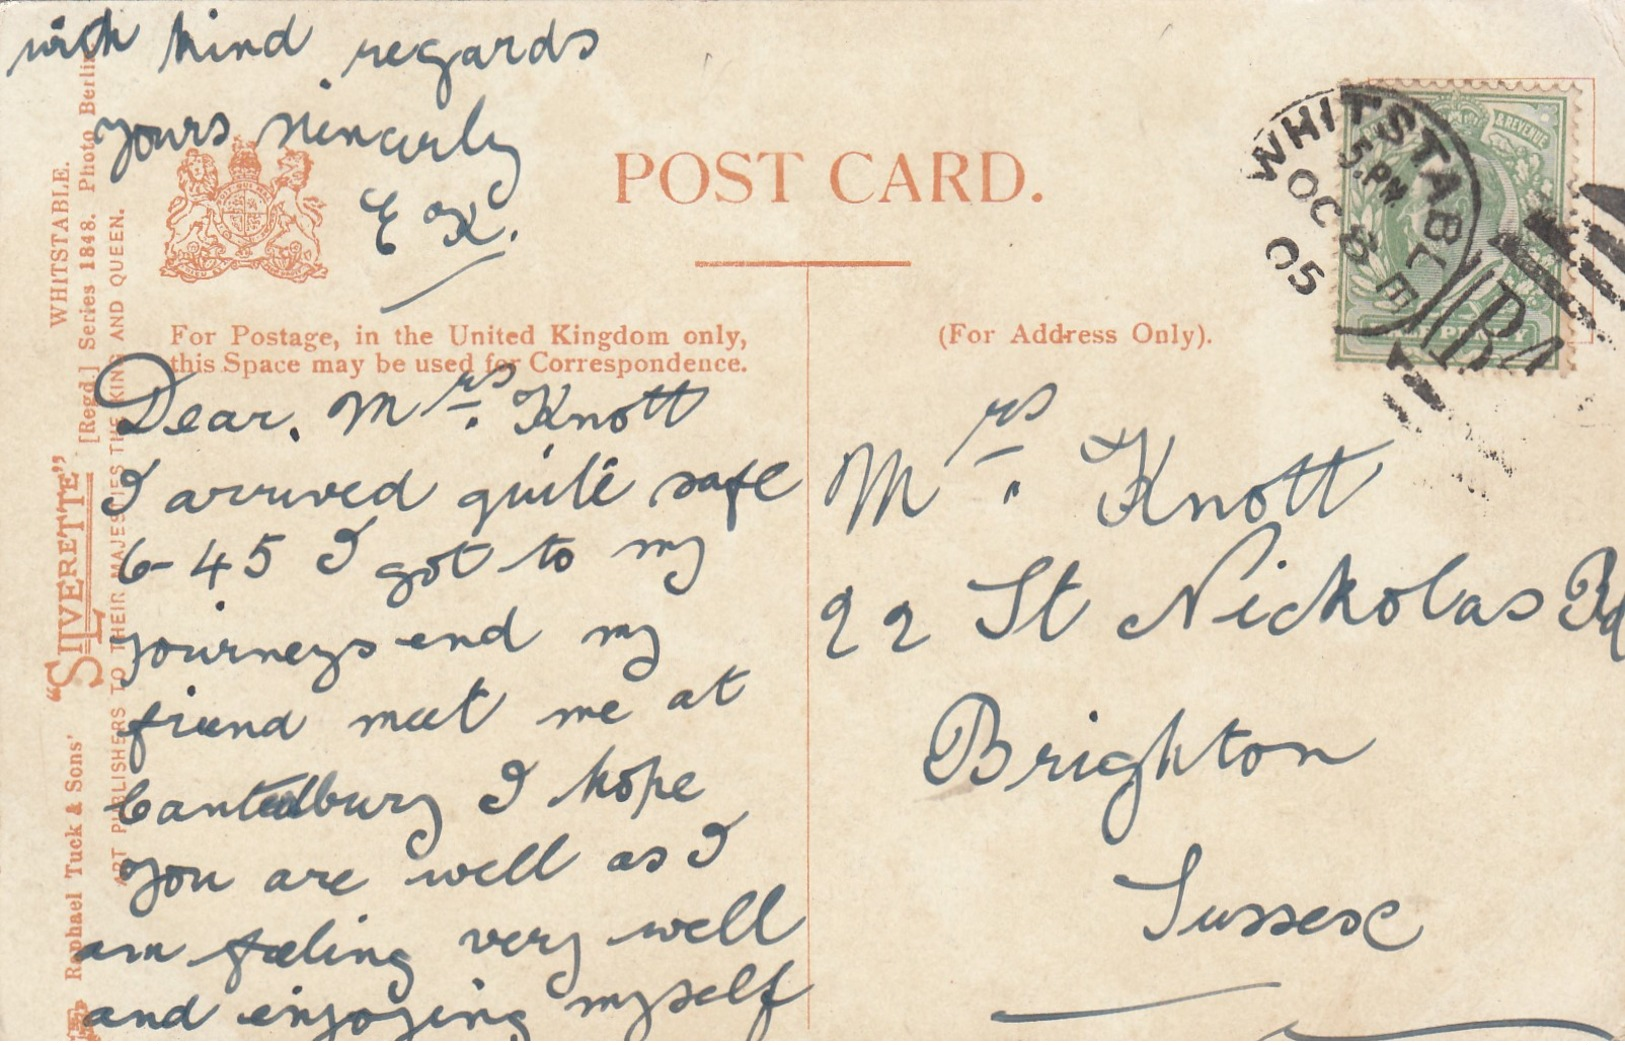 with kind regards
yours sincerly
E K.
POST CARD.
For Postage, in the United Kingdom only,
this Space may be used for Correspondence.
(For Address Only).
Dear. Mrs. Knott
I arrived quite safe
6-45 I got to my
journeys end my
friend meet me at
Canterbury I hope
you are well as I
am feeling very well
and enjoying myself
Mrs. Knott
22 St Nickolas Rd
Brighton
Sussex
WHITSTABLE
5.PM
OC 8
05
& REVENUE
Raphael Tuck & Sons' "SILVERETTE" [Regd.] Series 1848. Photo Berlin
WHITSTABLE.
ART PUBLISHERS TO THEIR MAJESTIES THE KING AND QUEEN.